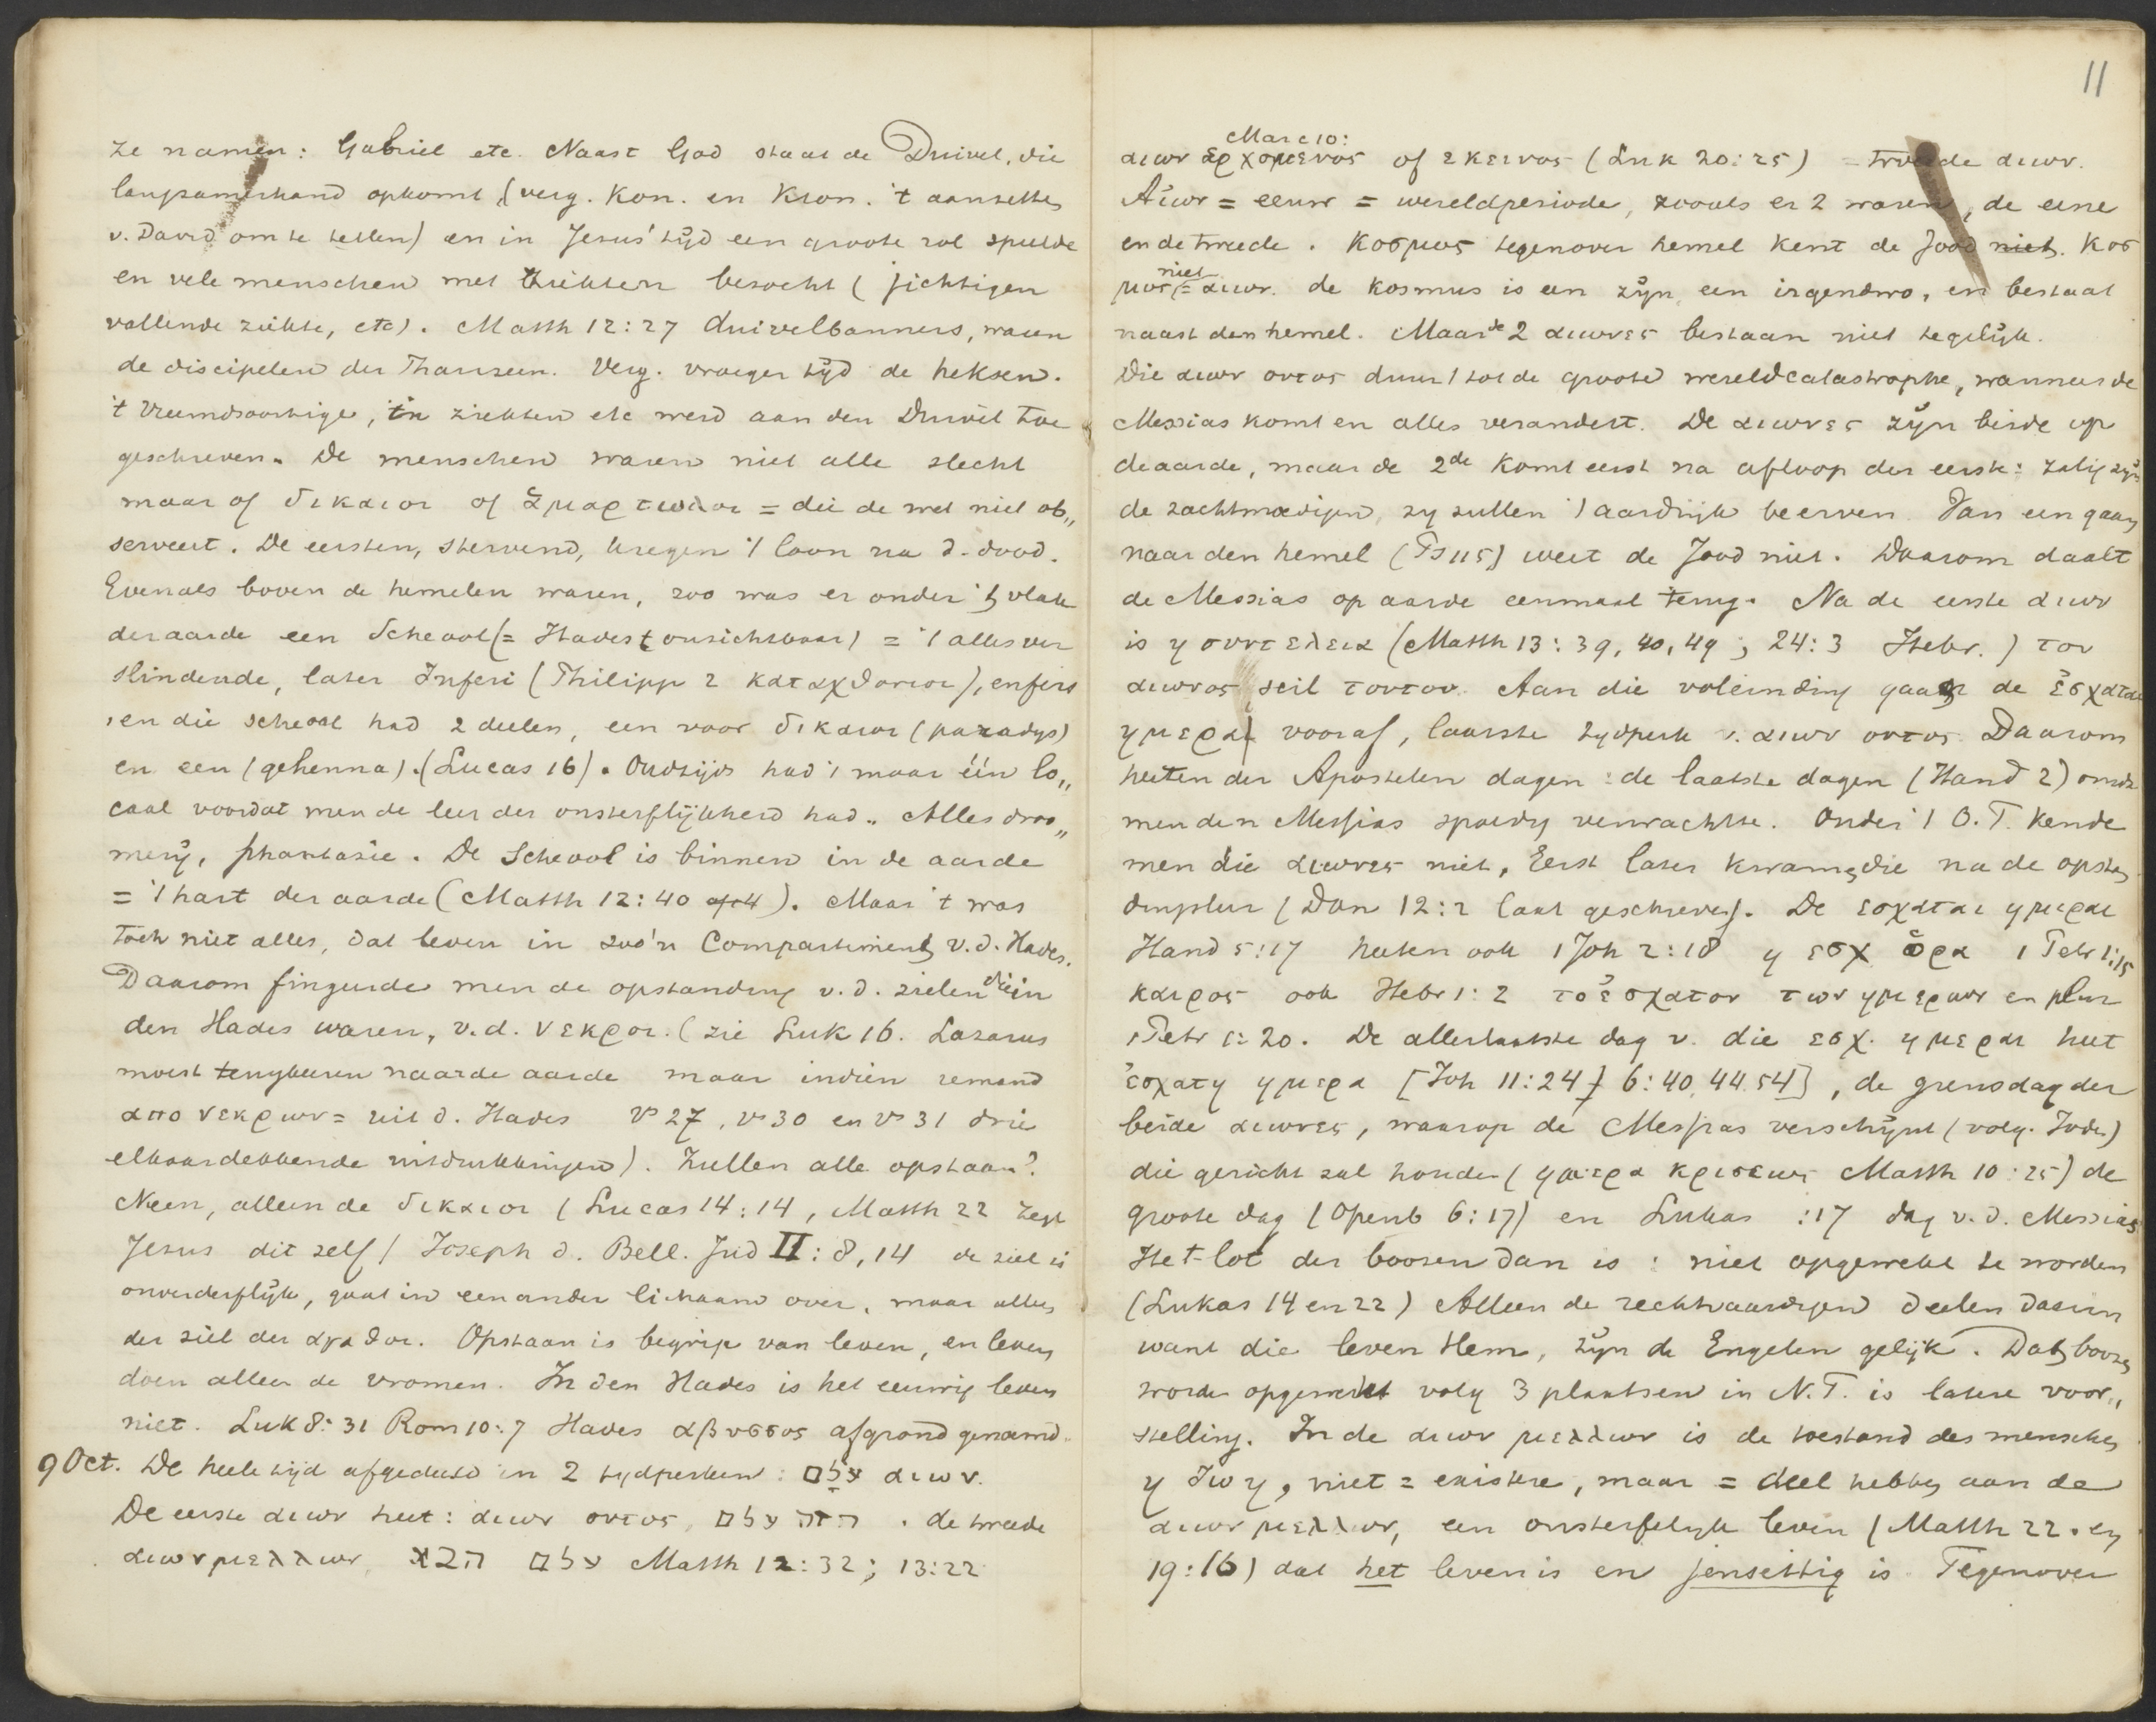 ze namen: Gabriel etc. Naast God staat de Duivel, die
langzamerhand opkomt (verg. Kon. en Kron. 't aanzetten
v. David om te tellen) en in Jesus' tijd een groote rol speelde
en vele menschen met ziekten bezocht (jichtigen
vallende ziekte, etc). Matth 12:27 duivelbanners, waren
de discipelen der Phariseen. Verg. vroeger tijd de heksen.
't Vreemdsoortige, in ziekten etc werd aan den Duivel toe
geschreven. De menschen waren niet alle slecht
maar of δικαιοι of ἁμαρτωλοι = die de wet niet ob„
serveert. De eersten, stervend, kregen 't loon na d. dood.
Evenals boven de hemelen waren, zoo was er onder 't vlak
der aarde een Scheool (= Hades (onzichtbaar) = 't alles ver
slindende, later Inferi (Philipp 2 καταχθονιοι), enfers
en die scheool had 2 deelen, een voor δικαιοι (paradys)
en een (gehenna). (Lucas 16). Oudtijds had 't maar één lo„
caal voordat men de leer der onsterflijkheid had. Alles droo„
merij, phantasie. De Scheool is binnen in de aarde
= 't hart der aarde (Matth 12:40 of 4). Maar 't was
toch niet alles, dat leven in zoo'n Compartiment v.d. Hades.
Daarom fingeerde men de opstanding v.d. zielen die in
den Hades waren, v.d. νεκροι. (zie Luk 16. Lazarus
moest terugkeeren naar de aarde maar indien iemand
απο νεκρων = uit d. Hades vs 27, vs 30 en vs 31 drie
elkaardekkende uitdrukkingen). Zullen alle opstaan?
Neen, alleen de δικαιοι (Lucas 14:14, Matth 22 zegt
Jesus dit zelf) Joseph d. Bell. Jud II:8,14 de ziel is
onverderflijk, gaat in een ander lichaam over, maar alleen
der ziel der αγαθοι. Opstaan is begrip van leven, en leven
doen alleen de vromen. In den Hades is het eeuwig leven
niet. Luk 8:31 Rom 10:7 Hades αβυσσος afgrond genoemd.
9 Oct. De heele tijd afgedeeld in 2 tydperken: עלם αιων.
De eerste αιων heet: αιων ουτος, עלם הזה. de tweede
αιων μελλων, עלם הבא Matth 12:32; 13:22
11
Marc 10:
αιων ερχομενος of εκεινος (Luk 20:25) = tweede αιων.
Αιων = eeuw = wereldperiode, zooals er 2 waren, de eene
en de tweede. Κοσμος tegenover hemel kent de Jood niet. Κοσ
μος niet = αιων. de Kosmus is een zijn, een irgendwo, en bestaat
naast den hemel. Maar de 2 αιωνες bestaan niet tegelijk.
Die αιων ουτος duurt tot de groote wereldcatastrophe, wanneer de
Messias komt en alles verandert. De αιωνες zijn beide op
de aarde, maar de 2de komt eerst na afloop der eerste: zalig zijn
de zachtmoedigen, zy zullen 't aardrijk beerven. Van een gaan
naar den hemel (Ps 115) weet de Jood niet. Daarom daalt
de Messias op aarde eenmaal terug. Na de eerste αιων
is η συντελεια (Matth 13:39, 40, 49; 24:3 Hebr. ) του
αιωνος scil τουτου. Aan die voleinding gaan de ἐσχαται
ημεραι vooraf, laatste tydperk v. αιων ουτος Daarom
heeten der Apostelen dagen: de laatste dagen (Hand 2) omdt
men den Messias spoedig verwachtte. Onder 't O.T. kende
men die αιωνες niet, Eerst later kwamen die na de opstan
dingsleer (Dan 12:2 laat geschreven). De εσχαται ημεραι
Hand 5:17 heeten ook 1 Joh 2:18 η εσχ ὁρα 1 Petr 1:15
καιρος ook Hebr 1:2 το ἐσχατον των ημερων en plur
1 Petr 1:20. De allerlaatste dag v. die εσχ. ημεραι heet
ἐσχατη ημερα [Joh 11:24; 6:40, 44.54], de grensdag der
beide αιωνες, waarop de Messias verschijnt (volg. Joden)
die gericht zal houden (ημερα κρισεως Matth 10:25) de
groote dag (Openb 6:17) en Lukas :17 dag v.d. Messias
Het lot der boozen dan is: niet opgewekt te worden
(Lukas 14 en 22) Alleen de rechtvaardigen deelen daarin
want die leven Hem, zijn de Engelen gelijk. Dat boozen
worden opgewekt volg 3 plaatsen in N.T. is latere voor„
stelling. In de αιων μελλων is de toestand des menschen
η ζωη, niet = existere, maar = deel hebben aan de
αιων μελλων, een onsterfelijk leven (Matth 22. en
19:16) dat het leven is en jenseitig is. Tegenover